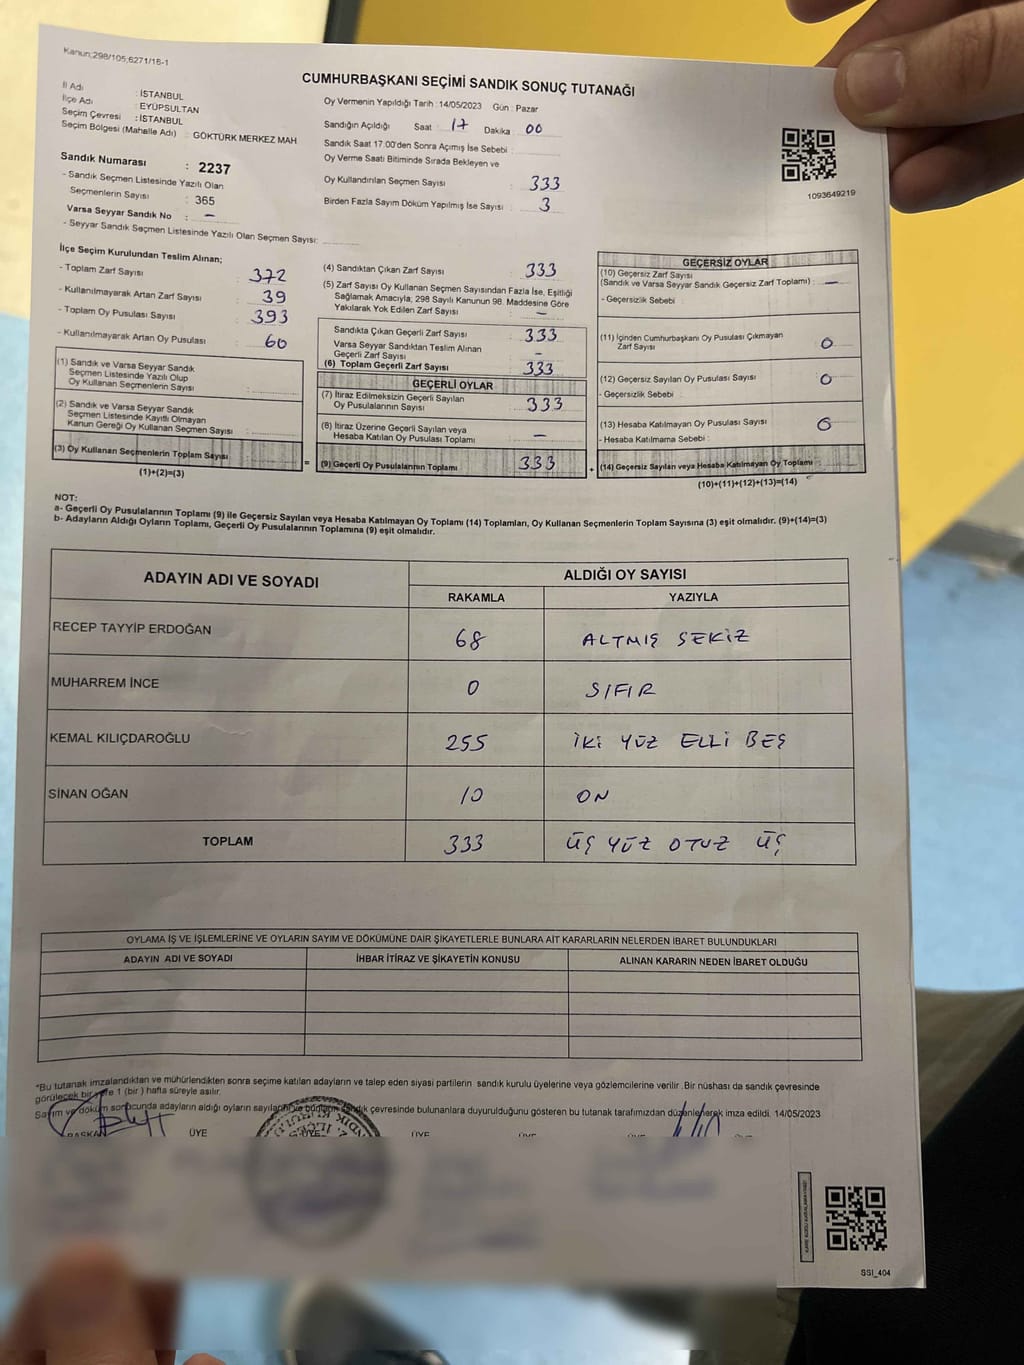 Kanun;298/105;6271/18-1
CUMHURBAŞKANI SEÇİMİ SANDIK SONUÇ TUTANAĞI
İl Adı : İSTANBUL
İlçe Adı : EYÜPSULTAN
Seçim Çevresi : İSTANBUL
Seçim Bölgesi (Mahalle Adı) : GÖKTÜRK MERKEZ MAH
Sandık Numarası : 2237
- Sandık Seçmen Listesinde Yazılı Olan
Seçmenlerin Sayısı : 365
Varsa Seyyar Sandık No : –
- Seyyar Sandık Seçmen Listesinde Yazılı Olan Seçmen Sayısı:
Oy Vermenin Yapıldığı Tarih : 14/05/2023 Gün : Pazar
Sandığın Açıldığı Saat : 17 Dakika : 00
Sandık Saat 17.00'den Sonra Açımış İse Sebebi :
Oy Verme Saati Bitiminde Sırada Bekleyen ve
Oy Kullandırılan Seçmen Sayısı : 333
Birden Fazla Sayım Döküm Yapılmış İse Sayısı : 3
1093649219
İlçe Seçim Kurulundan Teslim Alınan;
- Toplam Zarf Sayısı : 372
- Kullanılmayarak Artan Zarf Sayısı : 39
- Toplam Oy Pusulası Sayısı : 393
- Kullanılmayarak Artan Oy Pusulası : 60
(1) Sandık ve Varsa Seyyar Sandık
Seçmen Listesinde Yazılı Olup
Oy Kullanan Seçmenlerin Sayısı :
(2) Sandık ve Varsa Seyyar Sandık
Seçmen Listesinde Kayıtlı Olmayan
Kanun Gereği Oy Kullanan Seçmen Sayısı :
(3) Oy Kullanan Seçmenlerin Toplam Sayısı
(1)+(2)=(3)
(4) Sandıktan Çıkan Zarf Sayısı : 333
(5) Zarf Sayısı Oy Kullanan Seçmen Sayısından Fazla İse, Eşitliği
Sağlamak Amacıyla; 298 Sayılı Kanunun 98. Maddesine Göre
Yakılarak Yok Edilen Zarf Sayısı : –
Sandıkta Çıkan Geçerli Zarf Sayısı : 333
Varsa Seyyar Sandıktan Teslim Alınan
Geçerli Zarf Sayısı : –
(6) Toplam Geçerli Zarf Sayısı : 333
GEÇERLİ OYLAR
(7) İtiraz Edilmeksizin Geçerli Sayılan
Oy Pusulalarının Sayısı : 333
(8) İtiraz Üzerine Geçerli Sayılan veya
Hesaba Katılan Oy Pusulası Toplamı : –
= (9) Geçerli Oy Pusulalarının Toplamı : 333
GEÇERSİZ OYLAR
(10) Geçersiz Zarf Sayısı
(Sandık ve Varsa Seyyar Sandık Geçersiz Zarf Toplamı) : –
- Geçersizlik Sebebi :
(11) İçinden Cumhurbaşkanı Oy Pusulası Çıkmayan
Zarf Sayısı : 0
(12) Geçersiz Sayılan Oy Pusulası Sayısı : 0
- Geçersizlik Sebebi :
(13) Hesaba Katılmayan Oy Pusulası Sayısı :
- Hesaba Katılmama Sebebi :
+ (14) Geçersiz Sayılan veya Hesaba Katılmayan Oy Toplamı :
(10)+(11)+(12)+(13)=(14)
NOT:
a- Geçerli Oy Pusulalarının Toplamı (9) ile Geçersiz Sayılan veya Hesaba Katılmayan Oy Toplamı (14) Toplamları, Oy Kullanan Seçmenlerin Toplam Sayısına (3) eşit olmalıdır. (9)+(14)=(3)
b- Adayların Aldığı Oyların Toplamı, Geçerli Oy Pusulalarının Toplamına (9) eşit olmalıdır.
ADAYIN ADI VE SOYADI ALDIĞI OY SAYISI
RAKAMLA YAZIYLA
RECEP TAYYİP ERDOĞAN 68 ALTMIŞ SEKİZ
MUHARREM İNCE 0 SIFIR
KEMAL KILIÇDAROĞLU 255 İKİ YÜZ ELLİ BEŞ
SİNAN OĞAN 10 ON
TOPLAM 333 ÜÇ YÜZ OTUZ ÜÇ
OYLAMA İŞ VE İŞLEMLERİNE VE OYLARIN SAYIM VE DÖKÜMÜNE DAİR ŞİKAYETLERLE BUNLARA AİT KARARLARIN NELERDEN İBARET BULUNDUKLARI
ADAYIN ADI VE SOYADI İHBAR İTİRAZ VE ŞİKAYETİN KONUSU ALINAN KARARIN NEDEN İBARET OLDUĞU
*Bu tutanak imzalandıktan ve mühürlendikten sonra seçime katılan adayların ve talep eden siyasi partilerin sandık kurulu üyelerine veya gözlemcilerine verilir .Bir nüshası da sandık çevresinde
görülecek bir yere 1 (bir ) hafta süreyle asılır.
Sayım ve döküm sonucunda adayların aldığı oyların sayıları ve bunların sandık çevresinde bulunanlara duyurulduğunu gösteren bu tutanak tarafımızdan düzenlenerek imza edildi. 14/05/2023
BAŞKAN ÜYE ÜYE ÜYE
SSI_404